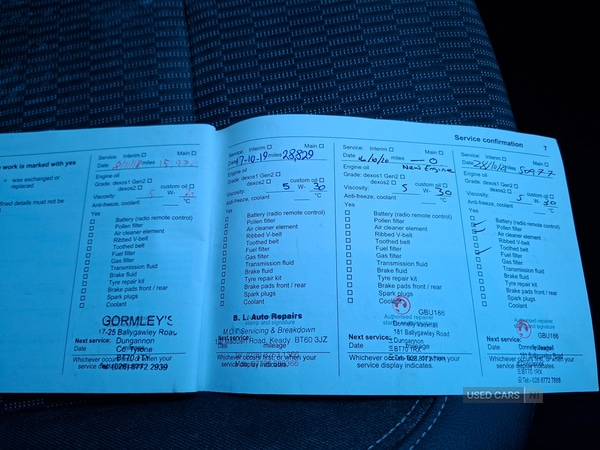 Service confirmation 7
work is marked with yes
was exchanged or
replaced
ined details must not be
out
Service: Interim Main
Date miles
Engine oil
Grade: dexos1 Gen2 custom oil
dexos2
Viscosity W-
Anti-freeze, coolant °C
Yes
Battery (radio remote control)
Pollen filter
Air cleaner element
Ribbed V-belt
Toothed belt
Fuel filter
Gas filter
Transmission fluid
Brake fluid
Tyre repair kit
Brake pads front / rear
Spark plugs
Coolant
GORMLEY'S
17-25 Ballygawley Road
Dungannon
Co. Tyrone
BT70
(028) 8772 2939
Next service:
Date
Whichever occurs first, or when your
service display indicates.
Service: Interim Main
Date 17-10-19 miles 28,829
Engine oil
Grade: dexos1 Gen2 custom oil
dexos2
Viscosity 5 W- 30
Anti-freeze, coolant °C
Yes
Battery (radio remote control)
Pollen filter
Air cleaner element
Ribbed V-belt
Toothed belt
Fuel filter
Gas filter
Transmission fluid
Brake fluid
Tyre repair kit
Brake pads front / rear
Spark plugs
Coolant
B. L. Auto Repairs
stamp and signature
M.O.T Servicing & Breakdown
Road, Keady BT60 3JZ
Next service:
Date mileage
Whichever occurs first, or when your
service display indicates.
Service: Interim Main
Date miles 0
Engine oil New Engine
Grade: dexos1 Gen2 custom oil
dexos2
Viscosity 5 W- 30
Anti-freeze, coolant °C
Yes
Battery (radio remote control)
Pollen filter
Air cleaner element
Ribbed V-belt
Toothed belt
Fuel filter
Gas filter
Transmission fluid
Brake fluid
Tyre repair kit
Brake pads front / rear
Spark plugs
Coolant
GBU186
Authorised repairer
Donnelly Vauxhall
181 Ballygawley Road
Dungannon
BT70 1RX
Next service:
Date mileage
Whichever occurs first, or when your
service display indicates.
Service: Interim Main
Date miles 50977
Engine oil
Grade: dexos1 Gen2 custom oil
dexos2
Viscosity 5 W- 30
Anti-freeze, coolant °C
Yes
Battery (radio remote control)
Pollen filter
Air cleaner element
Ribbed V-belt
Toothed belt
Fuel filter
Gas filter
Transmission fluid
Brake fluid
Tyre repair kit
Brake pads front / rear
Spark plugs
Coolant
GBU186
Authorised repairer
stamp and signature
Donnelly
181 Ballygawley Road
BT70 1RX
Next service:
Date
Whichever occurs first, or when your
service display indicates.
USED CARS NI